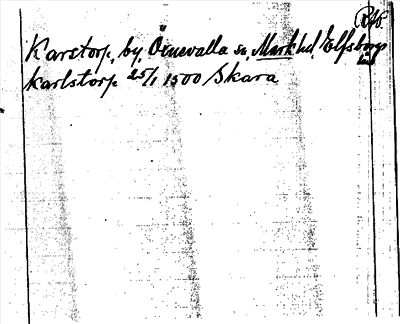 RAP.
Karstorp, by, Öinevalla sn, Marks hd, Elfsborgs län.
Karlstorp 25/1 1500 /Skara